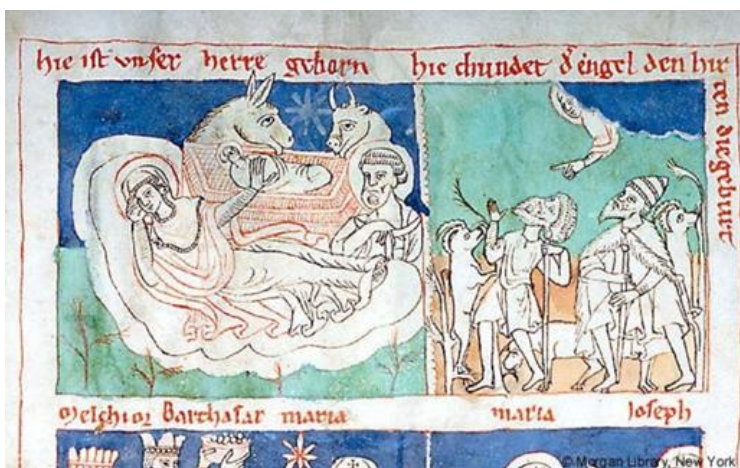 hie ist vnser herre geborn hie chundet d̕ engel den hir
ten die geburt
Melchior Barthasar maria maria Joseph
© Morgan Library, New York